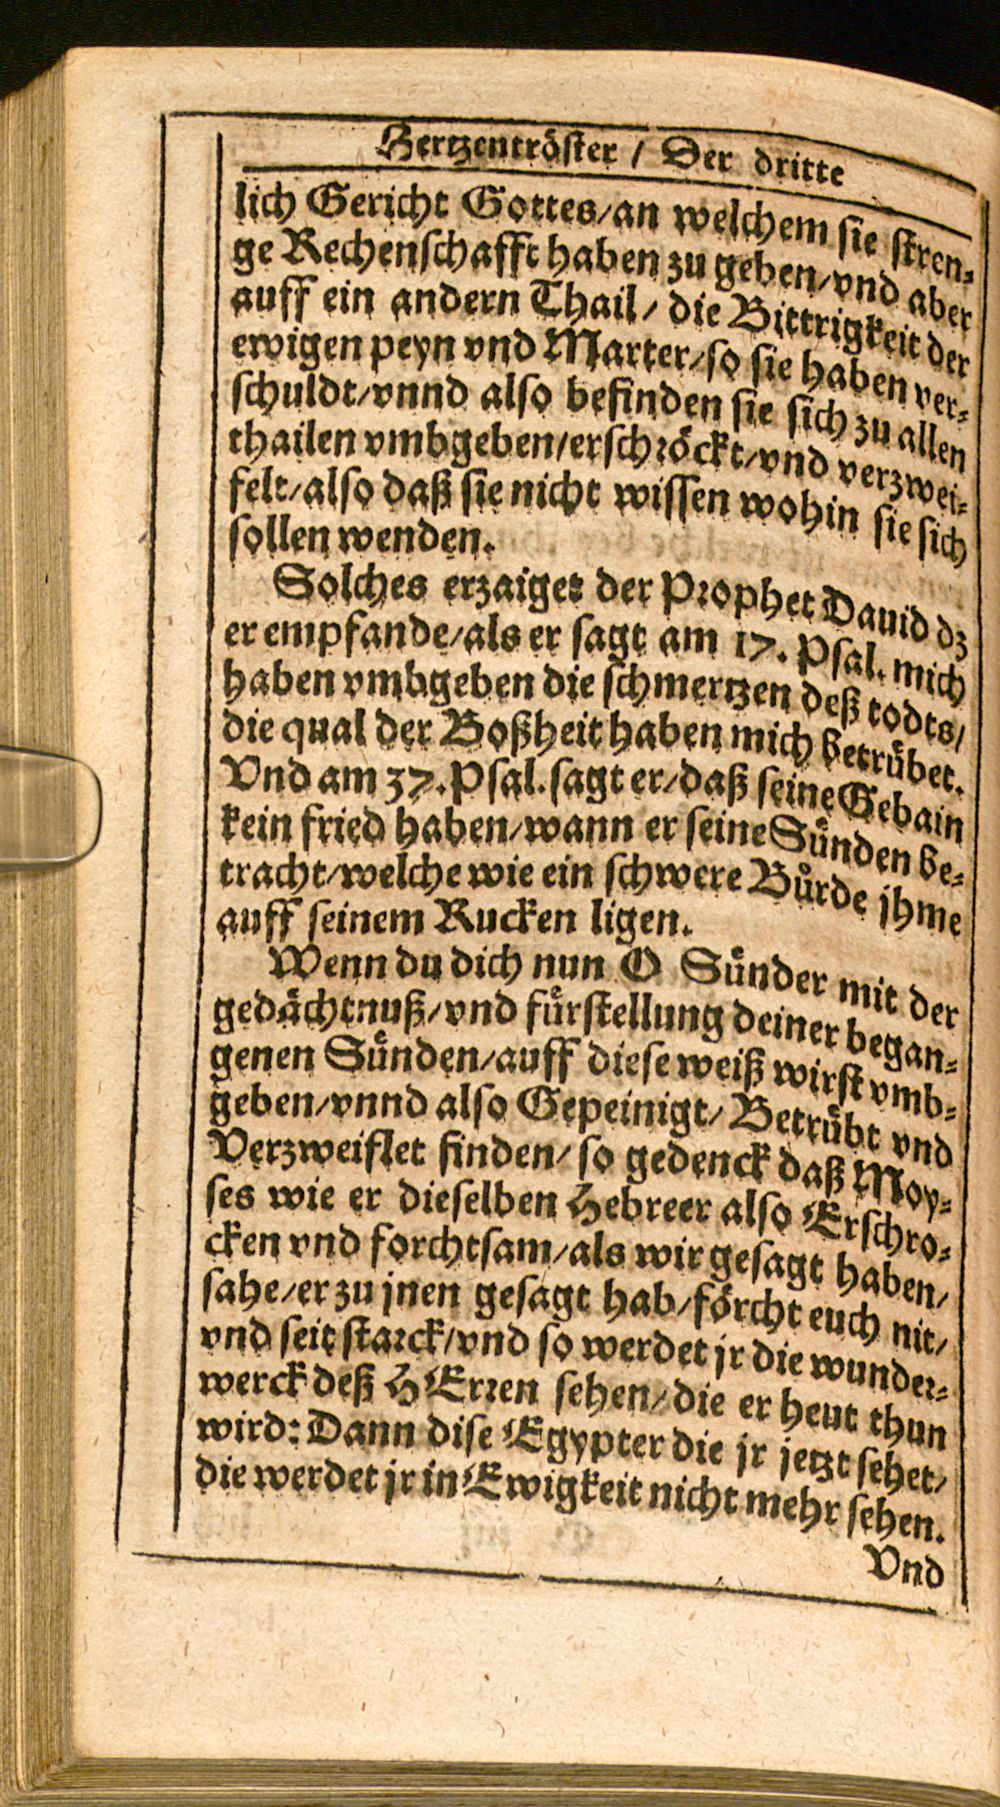 Hertzentröster / Der dritte
lich Gericht Gottes/an welchem sie stren⸗
ge Rechenschafft haben zu geben/vnd aber
auff ein andern Thail/ die Bittrigkeit der
ewigen peyn vnd Marter/so sie haben ver⸗
schuldt/vnnd also befinden sie sich zu allen
thailen vmbgeben/erschröckt/vnd verzwei⸗
felt/also daß sie nicht wissen wohin sie sich
sollen wenden.
Solches erzaiget der Prophet Dauid dz
er empfande/als er sagt am 17. Psal. mich
haben vmbgeben die schmertzen deß todts/
die qual der Boßheit haben mich betrübet.
Vnd am 37. Psal. sagt er/daß seine Gebain
kein fried haben/wann er seine Sünden be⸗
tracht/welche wie ein schwere Bürde jhme
auff seinem Rucken ligen.
Wenn du dich nun O Sünder mit der
gedächtnuß/vnd fürstellung deiner began⸗
genen Sünden/auff diese weiß wirst vmb⸗
geben/vnnd also Gepeinigt/ Betrübt vnd
Verzweiflet finden/ so gedenck daß Moy⸗
ses wie er dieselben Hebreer also Erschro⸗
cken vnd forchtsam/als wir gesagt haben/
sahe/er zu jnen gesagt hab/förcht euch nit/
vnd seit starck/vnd so werdet jr die wunder⸗
werck deß HErren sehen/die er heut thun
wird: Dann dise Egypter die jr jetzt sehet/
die werdet jr in Ewigkeit nicht mehr sehen.
Vnd